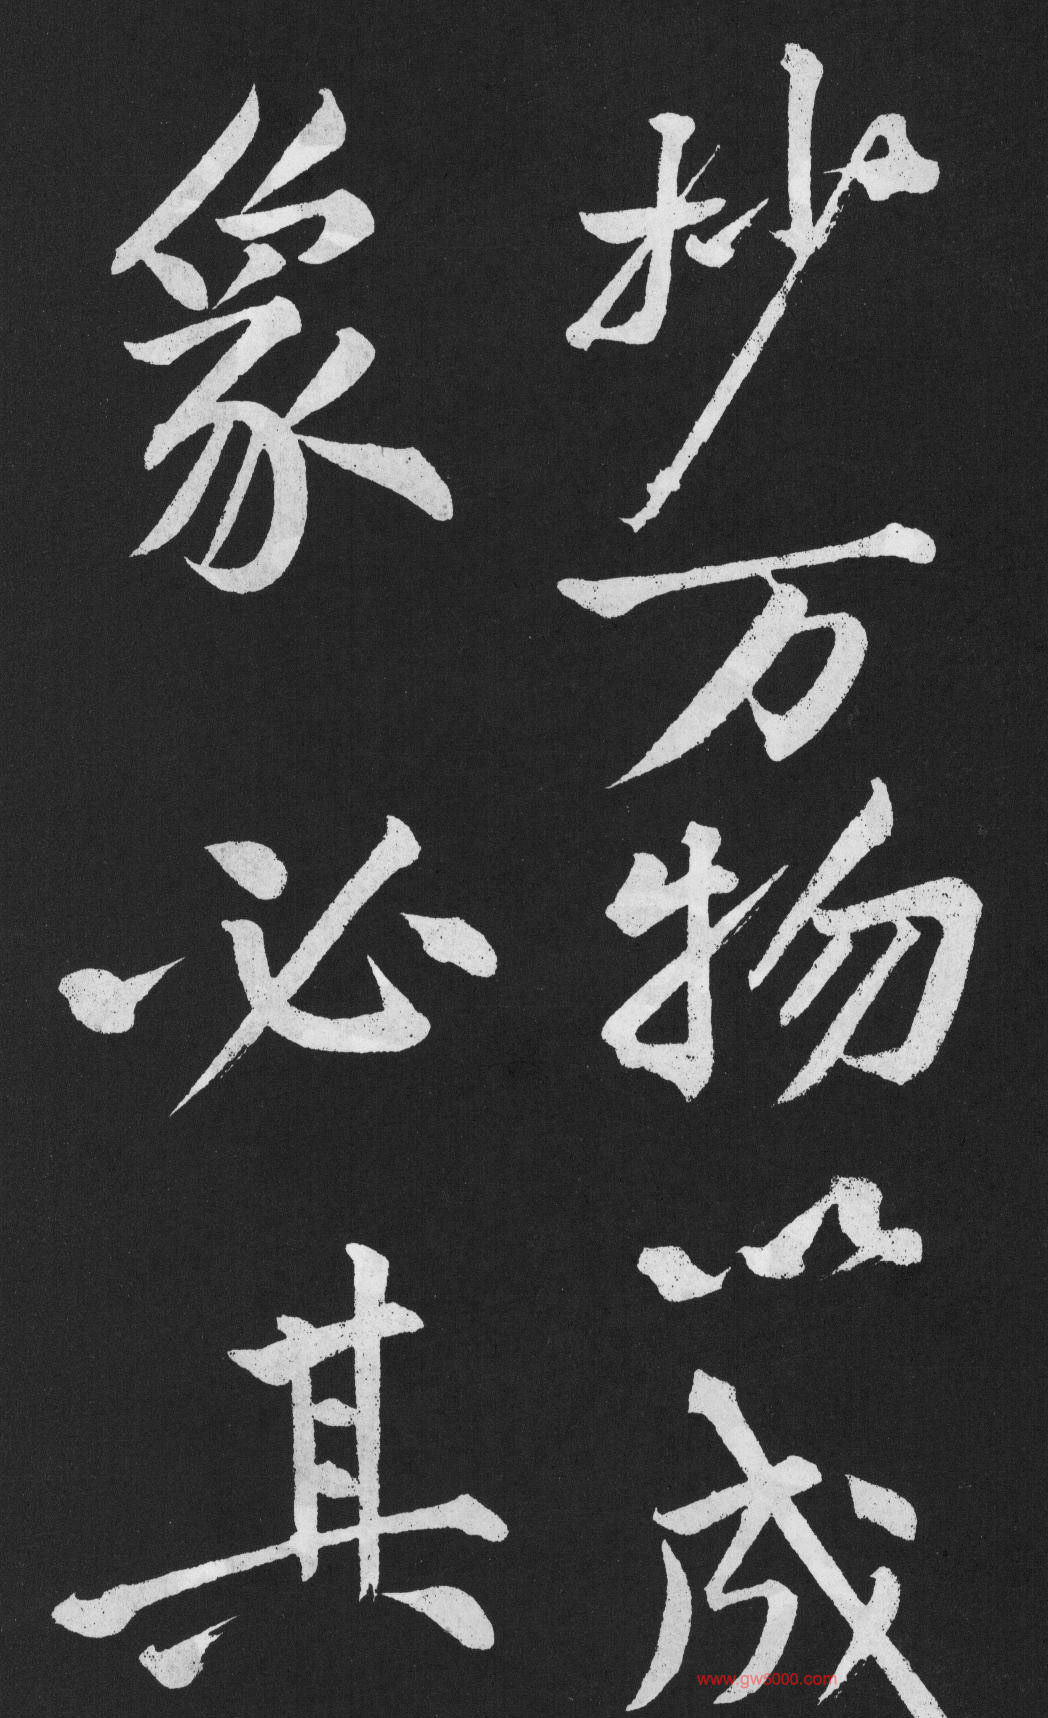 抄万物以成
篆必其
www.gw5000.com